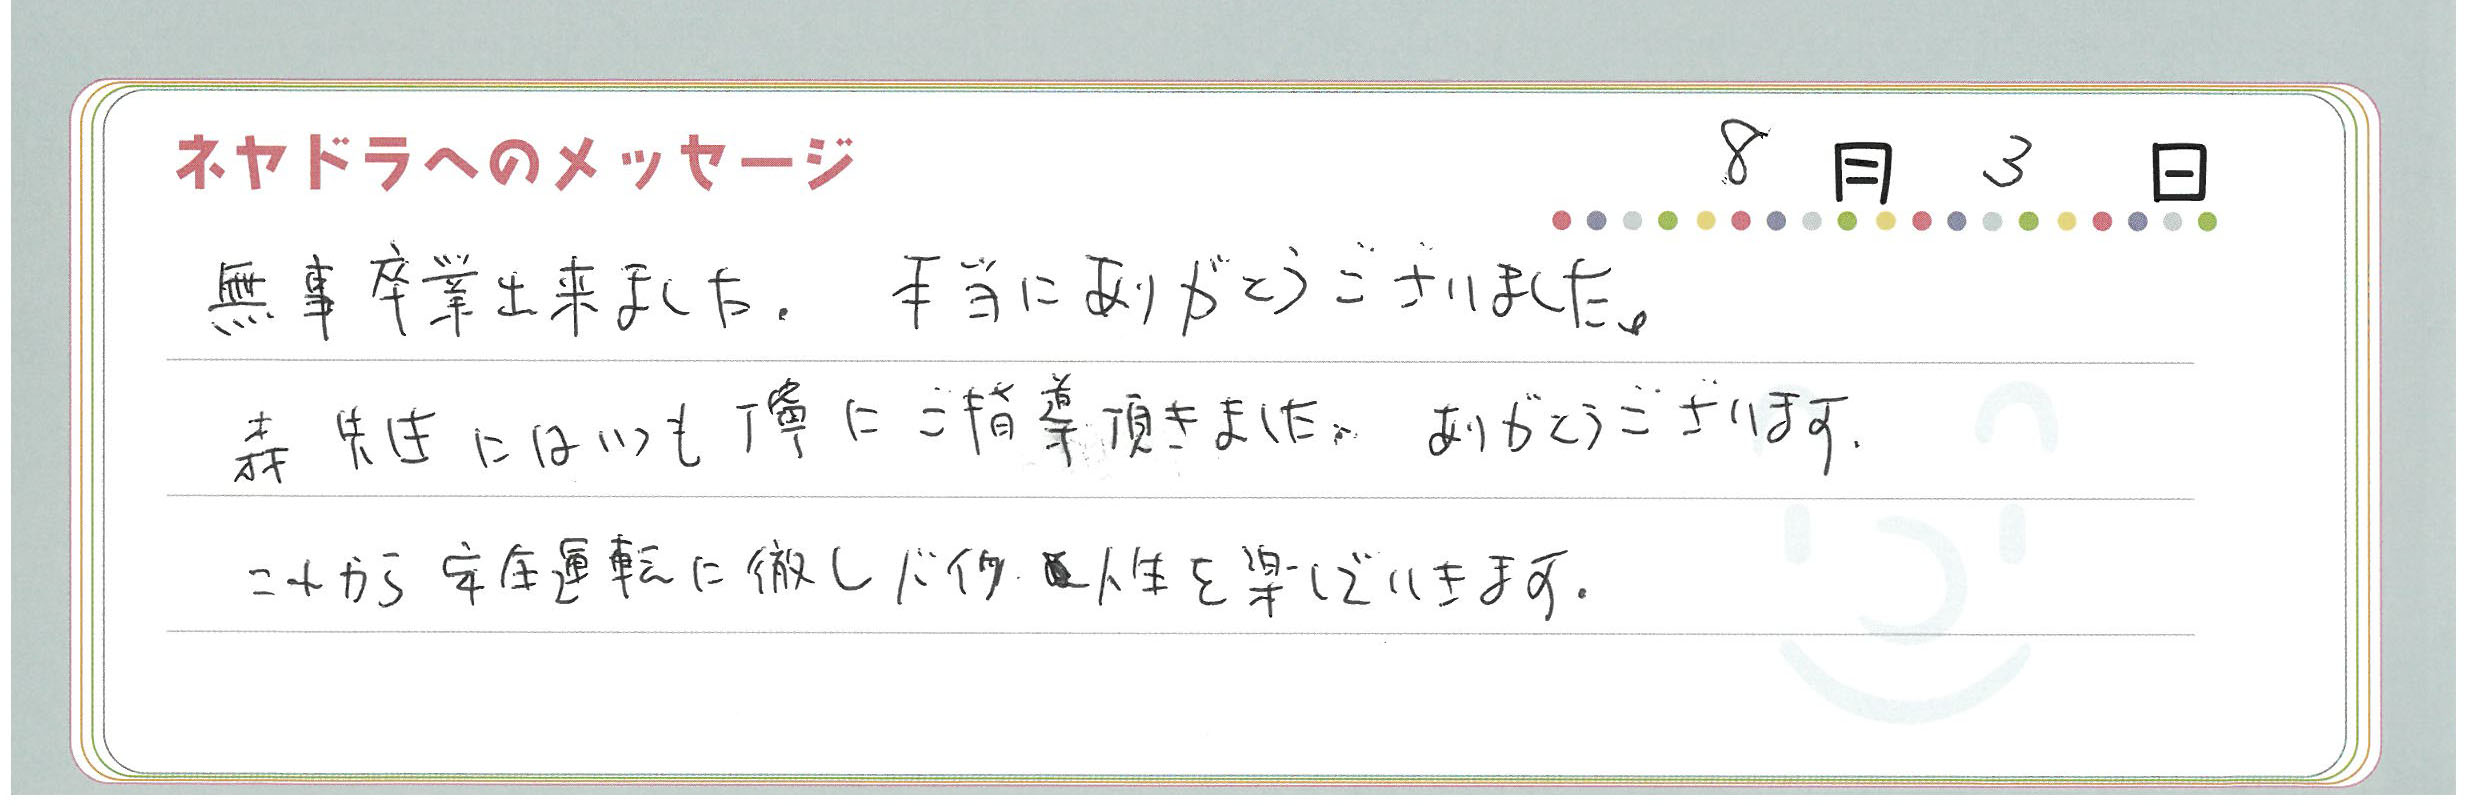 ネヤドラへのメッセージ
8月3日
無事卒業出来ました. 本当にありがとうございました。
森先生にはいつも丁寧にご指導頂きました。ありがとうございます.
これから安全運転に徹しバイク人生を楽しんでいきます.